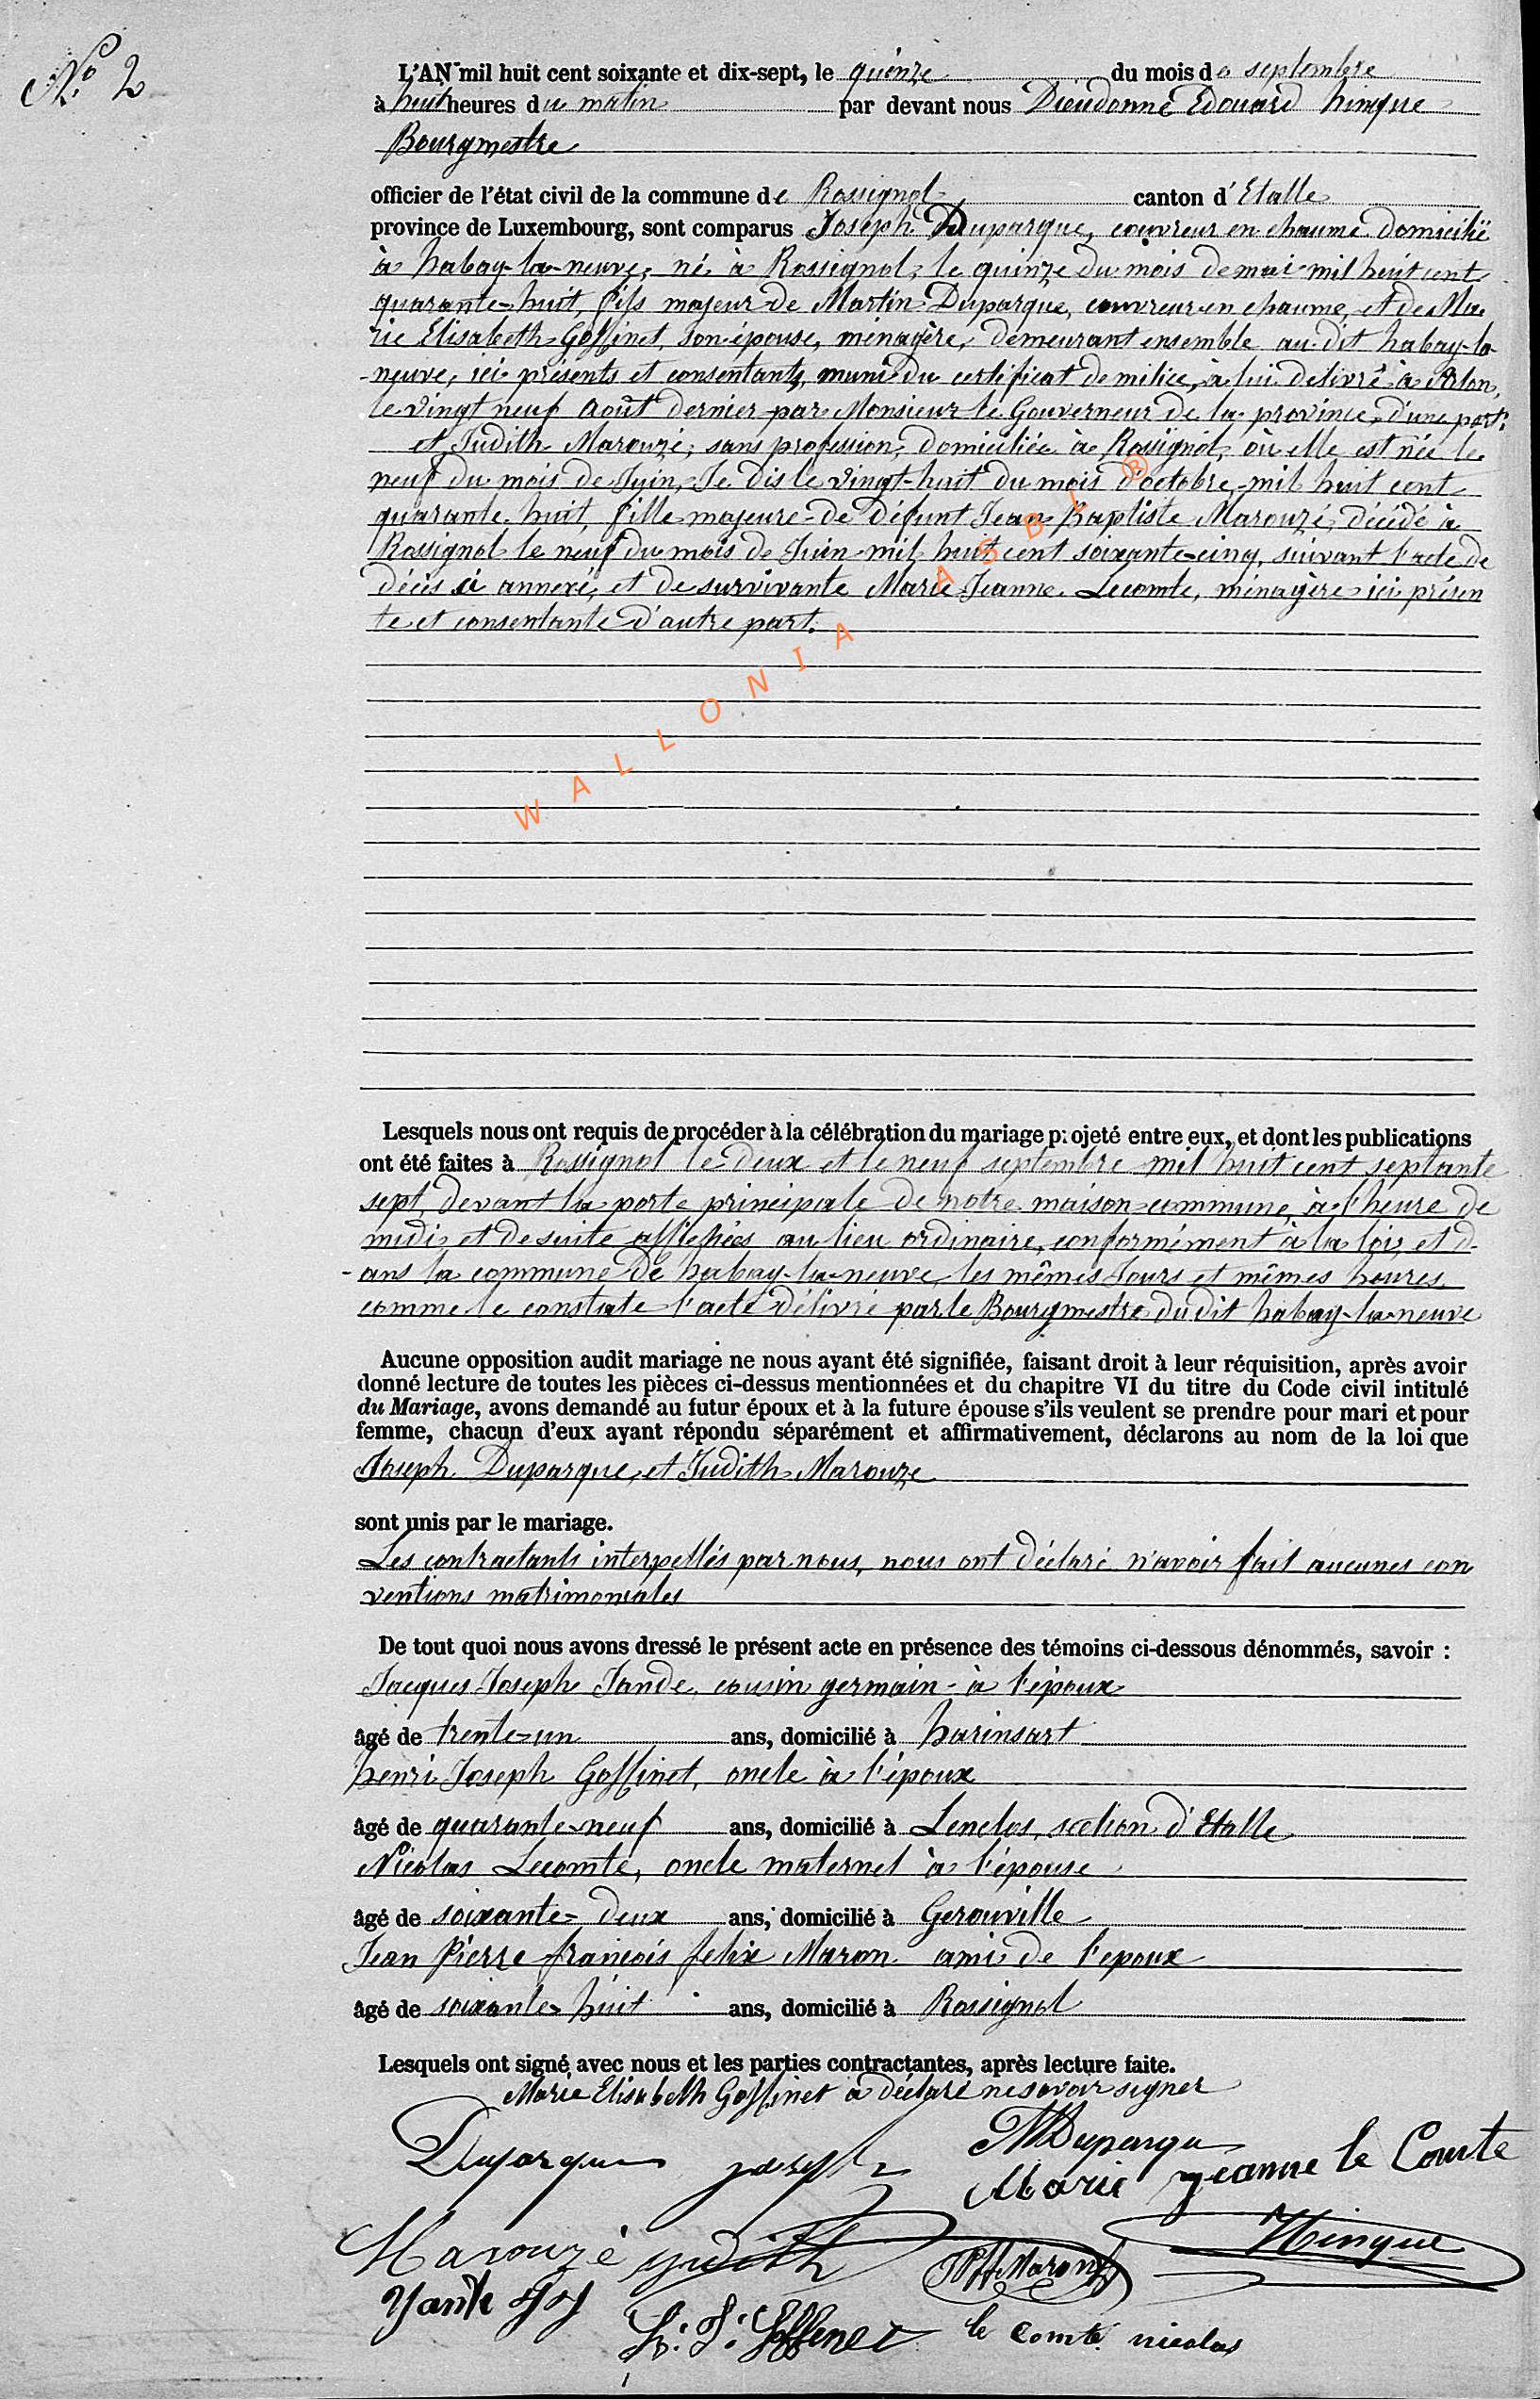 N.° 2
L'AN mil huit cent soixante et dix-sept, le quinze du mois de septembre
à huit heures du matin par devant nous Dieudonné Edouard hinque
Bourgmestre
officier de l'état civil de la commune de Rossignol canton d'Etalle
province de Luxembourg, sont comparus Joseph Duparque, couvreur en chaume domicilié
à habay-la-neuve, né à Rossignol, le quinze du mois de mai mil huit cent
quarante-huit, fils majeur de Martin Duparque, couvreur en chaume, et de Ma
rie Elisabeth Goffinet, son épouse, ménagère, demeurant ensemble au dit habay-la
-neuve, ici présents et consentants, muni du certificat de milice, à lui délivré à Arlon,
le vingt neuf Août dernier par Monsieur le Gouverneur de la province, d'une part:
et Judith Marouzé, sans profession, domiciliée à Rossignol, où elle est née le
neuf du mois de Juin, Je dis le vingt-huit du mois d'octobre, mil huit cent
quarante huit, fille majeure de défunt Jean Baptiste Marouzé, décédé à
Rossignol le neuf du mois de Juin mil huit cent soixante-cinq, suivant l'acte de
décès ci annexé, et de survivante Marie Jeanne Lecomte, ménagère ici présen
te et consentante d'autre part.
WALLONIA ASBL ®
Lesquels nous ont requis de procéder à la célébration du mariage projeté entre eux, et dont les publications
ont été faites à Rossignol le deux et le neuf septembre mil huit cent septante
sept, devant la porte principale de notre maison commune, à l'heure de
midi, et de suite affichées au lieu ordinaire, conformément à la loi, et d
-ans la commune de habay-la-neuve, les mêmes Jours et mêmes heures
comme le constate l'acte délivré par le Bourgmestre du dit habay-la-neuve
Aucune opposition audit mariage ne nous ayant été signifiée, faisant droit à leur réquisition, après avoir
donné lecture de toutes les pièces ci-dessus mentionnées et du chapitre VI du titre du Code civil intitulé
du Mariage, avons demandé au futur époux et à la future épouse s'ils veulent se prendre pour mari et pour
femme, chacun d'eux ayant répondu séparément et affirmativement, déclarons au nom de la loi que
Joseph Duparque, et Judith Marouze
sont unis par le mariage.
Les contractants interpellés par nous, nous ont déclaré n'avoir fait aucunes con
ventions matrimoniales
De tout quoi nous avons dressé le présent acte en présence des témoins ci-dessous dénommés, savoir :
Jacques Joseph Jande, cousin germain à l'époux
âgé de trente-un ans, domicilié à harinsart
henri Joseph Goffinet, oncle à l'époux
âgé de quarante-neuf ans, domicilié à Lenclos, section d'Etalle
Nicolas Lecomte, oncle maternel à l'épouse
âgé de soixante-deux ans, domicilié à Gerouville
Jean Pierre françois felix Maron ami de l'epoux
âgé de soixante-huit ans, domicilié à Rossignol
Lesquels ont signé avec nous et les parties contractantes, après lecture faite.
Marie Elisabeth Goffinet a déclaré ne savoir signer
Duparque joseph MDuparque
Marie jeanne le Comte
Marouzé judith Maron Hinque
h. J. Goffinet le comte nicolas